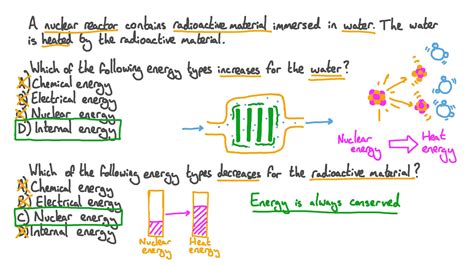 A nuclear reactor contains radioactive material immersed in water. The water
is heated by the radioactive material.
Which of the following energy types increases for the water?
A) Chemical energy
B) Electrical energy
C) Nuclear energy
D) Internal energy
Nuclear energy
Heat energy
Which of the following energy types decreases for the radioactive material?
A) Chemical energy
B) Electrical energy
C) Nuclear energy
D) Internal energy
Nuclear energy
Heat energy
Energy is always conserved